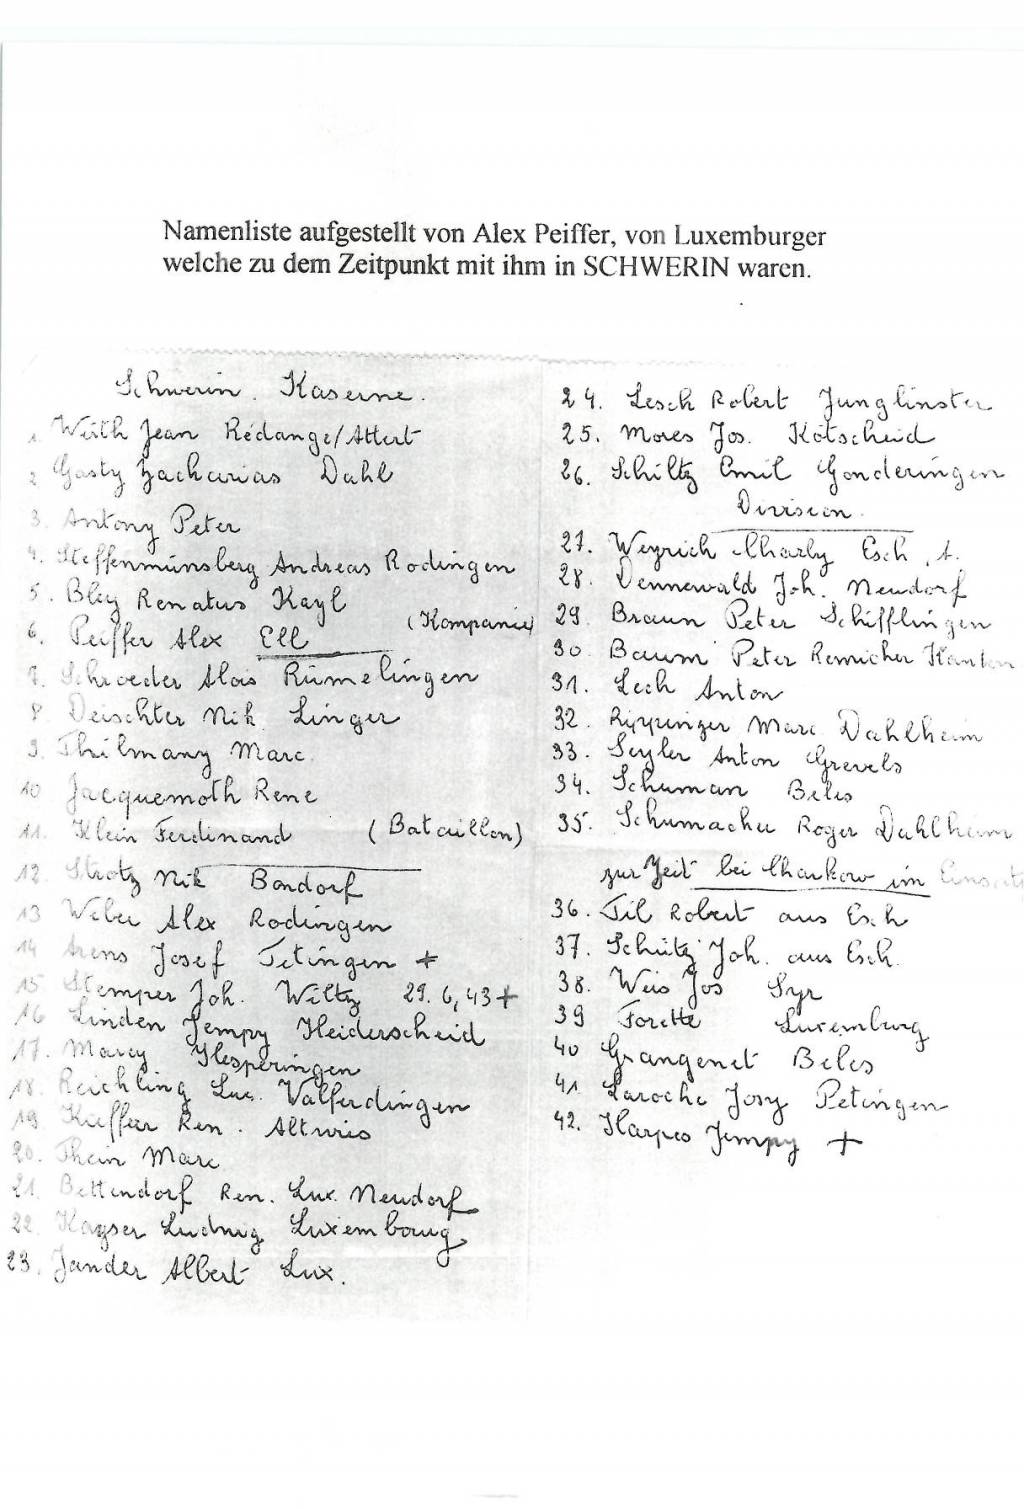 Namenliste aufgestellt von Alex Peiffer, von Luxemburger
welche zu dem Zeitpunkt mit ihm in SCHWERIN waren.
Schwerin. Kaserne.
1. Wirth Jean Rédange/Attert
2. Gasty Zacharias Dahl
3. Antony Peter
4. Steffenmünsberg Andreas Rodingen
5. Bley Renatus Kayl
6. Peiffer Alex Ell (Kompanie)
7. Schroeder Alois Rümelingen
8. Deischter Nik Linger
9. Thilmany Marc.
10 Jacquemoth Rene
11. Klein Ferdinand (Bataillon)
12 Strotz Nik Bondorf
13 Weber Alex Rodingen
14 Arens Josef Tetingen +
15 Stemper Joh. Wiltz 29.6,43 +
16 Linden Jempy Heiderscheid
17. Marcy Hesperingen
18. Reichling Luc. Walferdingen
19 Kieffer Ren. Altwies
20. Thein Marc
21. Bettendorf Ren. Lux. Neudorf
22. Kayser Ludwig Luxembourg
23. Jander Albert Lux.
24. Lesch Robert Junglinster
25. Mores Jos. Kötscheid
26. Schiltz Emil Gonderingen
Division.
27. Weyrich Charly Esch A.
28. Dennewald Joh. Neudorf
29. Braun Peter Schifflingen
30. Baum Peter Remicher Kanton
31. Lech Anton
32. Rippinger Marc. Dahlheim
33. Seyler Anton Grevels
34. Schuman Beles
35. Schumacher Roger Dahlheim
zur Zeit bei Charkow im Einsatz
36. Til Robert aus Esch
37. Schütz Joh. aus Esch.
38. Weis Jos Syr
39 Forette Luxemburg
40 Grangenet Beles
41. Laroche Josy Petingen
42. Harpes Jempy +